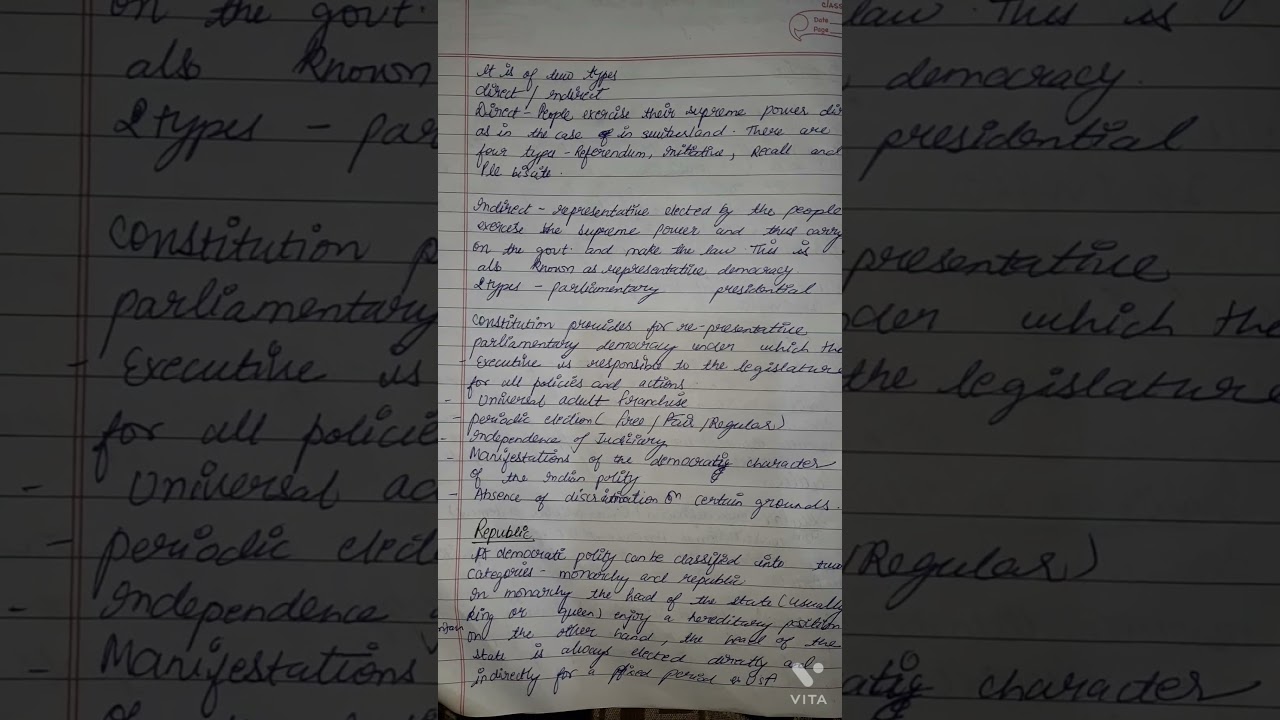 CLASS
Date
Page
It is of two types
direct / Indirect
Direct - People exercise their supreme power dir
as in the case of in switzerland. There are
four type - Referendum, Initiative, Recall and
Ple bisite.
Indirect - representative elected by the people
exercise the supreme power and thus carry
on the govt. and make the law. This is
also known as representative democracy.
2 types - parliamentary presidential
constitution provides for re-presentative
parliamentary democracy under which the
- Executive is responsible to the legislature
for all policies and actions.
- Universal adult franchise
- periodic election ( free / Fair / Regular )
- Independence of Judiciary
- Manifestations of the democratic character
of the Indian polity
- Absence of discrimination on certain grounds.
Republic
A democratic polity can be classified into two
categories - monarchy and republic
In monarchy the head of the state (usually
king or queen) enjoy a hereditary position
on the other hand, the head of the
state is always elected directly
indirectly for a fixed period USA
VITA